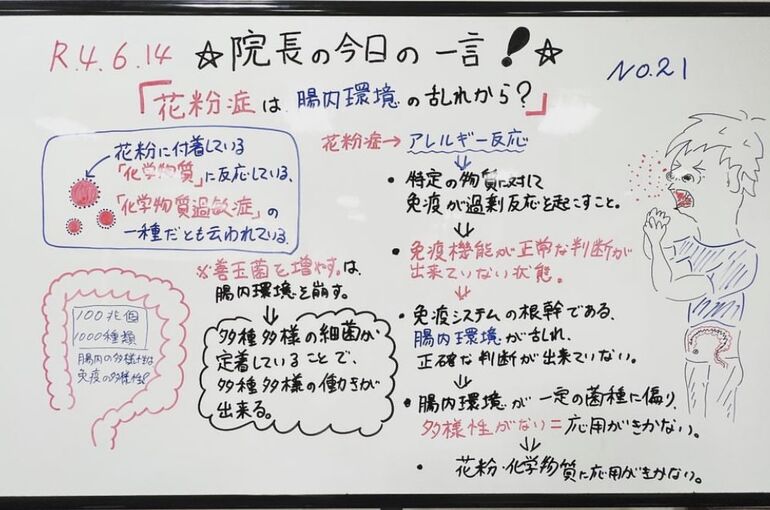 R.4.6.14 ☆院長の今日の一言!☆ NO.21
「花粉症は、腸内環境の乱れから?」
花粉に付着している
「化学物質」に反応している、
「化学物質過敏症」の
一種だとも云われている。
花粉症→アレルギー反応
・特定の物質に対して
免疫が過剰反応を起こすこと。
・免疫機能が正常な判断が
出来ていない状態。
・免疫システムの根幹である、
腸内環境が乱れ、
正確な判断が出来ていない。
・腸内環境が一定の菌種に偏り、
多様性がない=応用がきかない。
・花粉・化学物質に応用がきかない。
※善玉菌を増やす。は、
腸内環境を崩す。
多種多様の細菌が
定着していることで、
多種多様の働きが
出来る。
100兆個
1000種類
腸内の多様性は
免疫の多様性